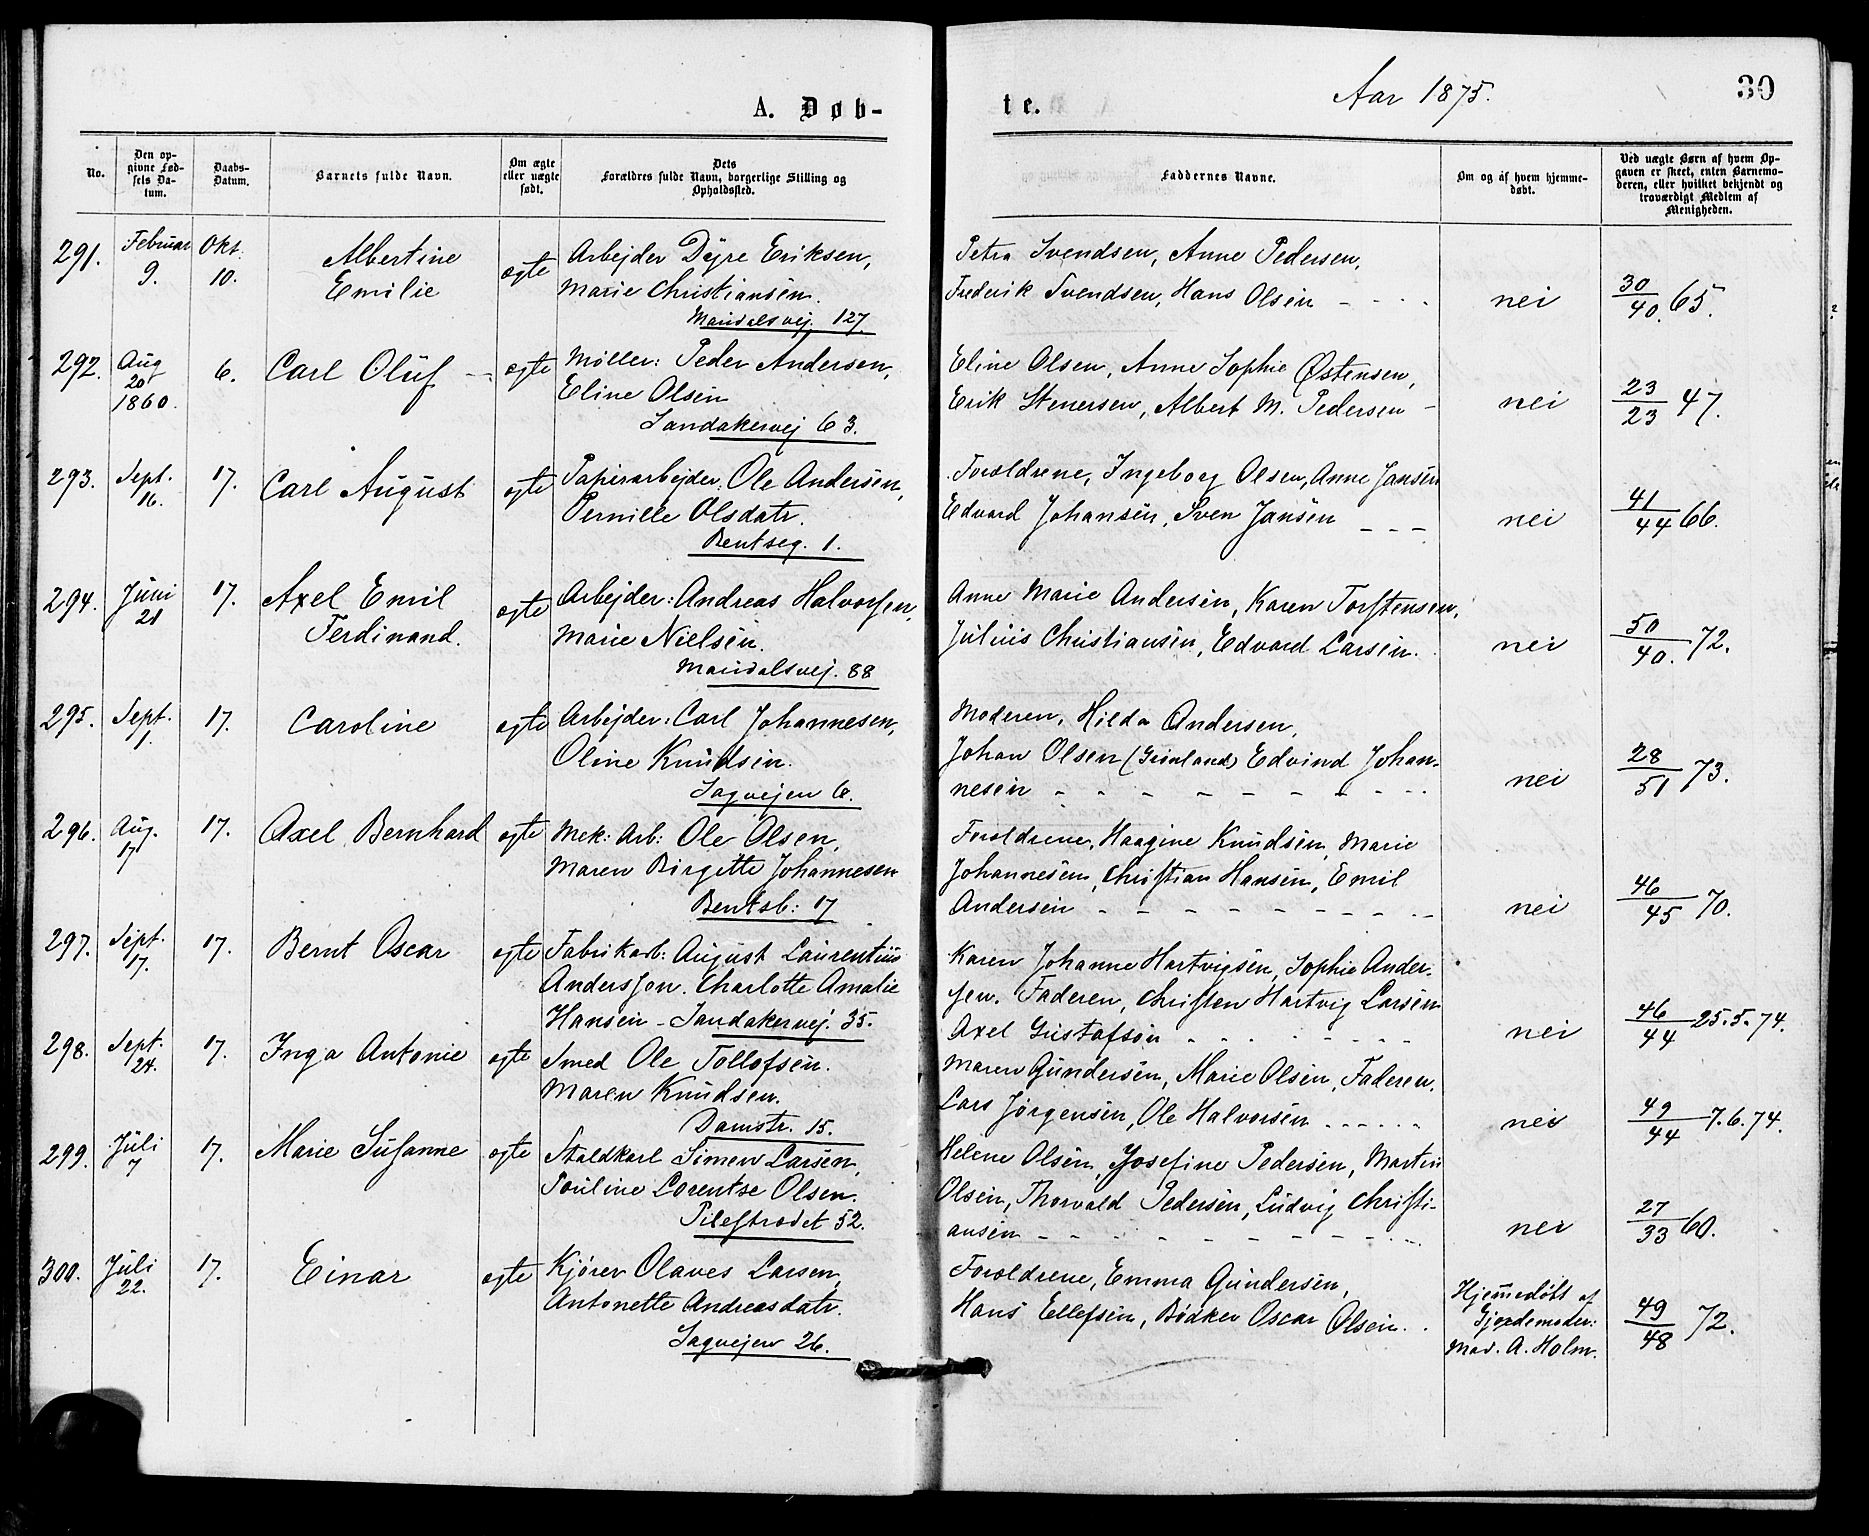 A. Døb-
te.
Aar 1875.
30
No.
Den op-
givne Fød-
sels Da-
tum.
Daabs-
Datum.
Barnets fulde Navn.
Om ægte
eller uægte
født.
Dets
Forældres fulde Navn, borgerlige Stilling og
Opholdssted.
Faddernes Navne.
Om og af hvem hjemme-
døbt.
Ved uægte Børn af hvem Op-
gaven er skeet, enten Barnemo-
deren, eller hvilket bekjendt og
troværdigt Medlem af
Menigheden.
291.
Februar
9.
Okt.
10.
Albertine
Emilie
ægte
Arbejder Dyre Eriksen,
Marie Christiansen.
Maridalsvej. 127.
Petra Svendsen, Anne Pedersen,
Frederik Svendsen, Hans Olsen - - - -
nei
30/40. 65.
292.
Aug
20
1860.
6.
Carl Oluf -
ægte
Møller: Peder Andersen,
Eline Olsen
Sandakervej 63.
Eline Olsen, Anne Sophie Østensen,
Erik Stenersen, Albert M. Pedersen -
nei
23/23 47.
293.
Sept.
16.
17.
Carl August
ægte
Papirarbejder: Ole Andersen,
Pernille Olsdatr.
Bentseg. 1.
Forældrene, Ingeborg Olsen, Anne Jansen
Edvard Johansen, Sven Jansen - - -
nei
41/44 66.
294.
Juni
21
17.
Axel Emil
Ferdinand.
ægte
Arbejder: Andreas Halvorsen,
Marie Nielsen.
Maridalsvej. 88
Anne Marie Andersen, Karen Torstensen,
Julius Christiansen, Edvard Larsen.
nei
50/40. 72.
295.
Sept.
1.
17.
Caroline
ægte
Arbejder: Carl Johannesen,
Oline Knudsen.
Sagvejen 6.
Moderen, Hilda Andersen,
Johan Olsen (Grønland) Edvind Johan-
nesen - - - - - - - - - -
nei
28/51 73.
296.
Aug.
17
17.
Axel Bernhard
ægte
Mek: Arb: Ole Olsen,
Maren Birgitte Johannesen
Bentsb: 17
Forældrene, Haagine Knudsen, Marie
Johannesen, Christian Hansen, Emil
Andersen - - - - - - - - -
nei
46/45 70.
297.
Sept.
17.
17.
Bernt Oscar
ægte
Fabrikarb: August Laurentius
Andersson. Charlotte Amalie
Hansen - Sandakervej. 35.
Karen Johanne Hartvigsen, Sophie Ander-
sen. Faderen, Christen Hartvig Larsen
Axel Gustafson - - - - - - -
nei
46/44 25.5.74.
298.
Sept.
24.
17.
Inga Antonie
ægte
Smed Ole Tollofsen.
Maren Knudsen.
Damstr. 15.
Maren Gundersen, Marie Olsen, Faderen.
Lars Jørgensen, Ole Halvorsen - - - - - -
nei
49/44 7.6.74.
299.
Juli
7
17.
Marie Susanne
ægte
Staldkarl Simen Larsen,
Pauline Lorentse Olsen.
Pilestrædet 52.
Helene Olsen, Josefine Pedersen, Martin
Olsen, Thorvald Pedersen, Ludvig Christi-
ansen - - - - - - - - - - -
nei
27/33 60.
300.
Juli
22.
17.
Einar
ægte
Kjører Olaves Larsen,
Antonette Andreasdatr.
Sagvejen 26.
Forældrene, Emma Gundersen,
Hans Ellefsen, Bødker Oscar Olsen. .
Hjemmedøbt af
Gjordemoder:
Mad. A. Holm.
49/48 72.